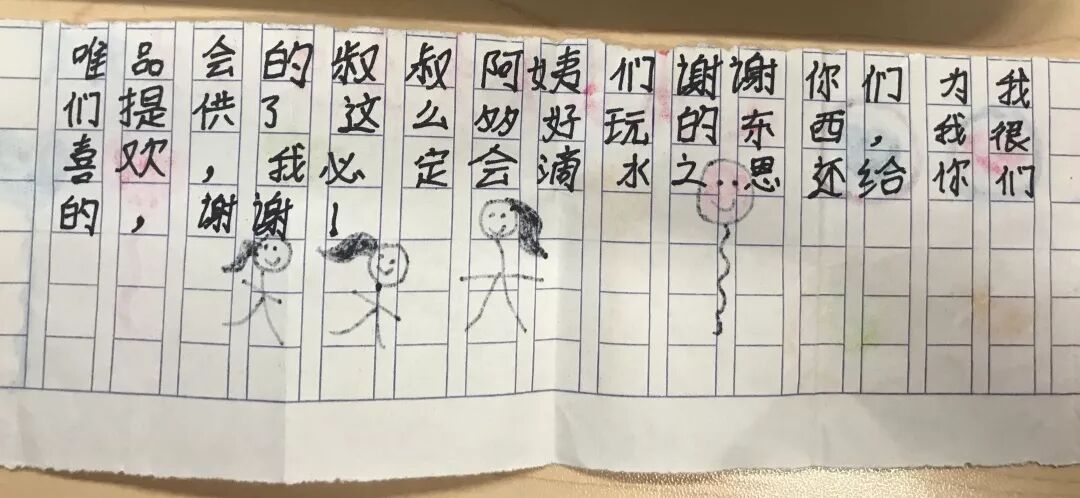 唯品会的叔叔阿姨们谢谢你们为我
们提供了这么多好玩的东西，我很
喜欢，我必定会滴水之思还给你们
的，谢谢！